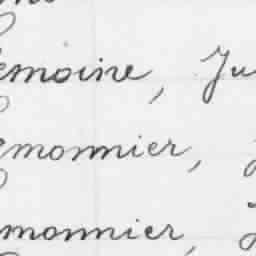 emoine, Ju
emonnier, J
monnier, J